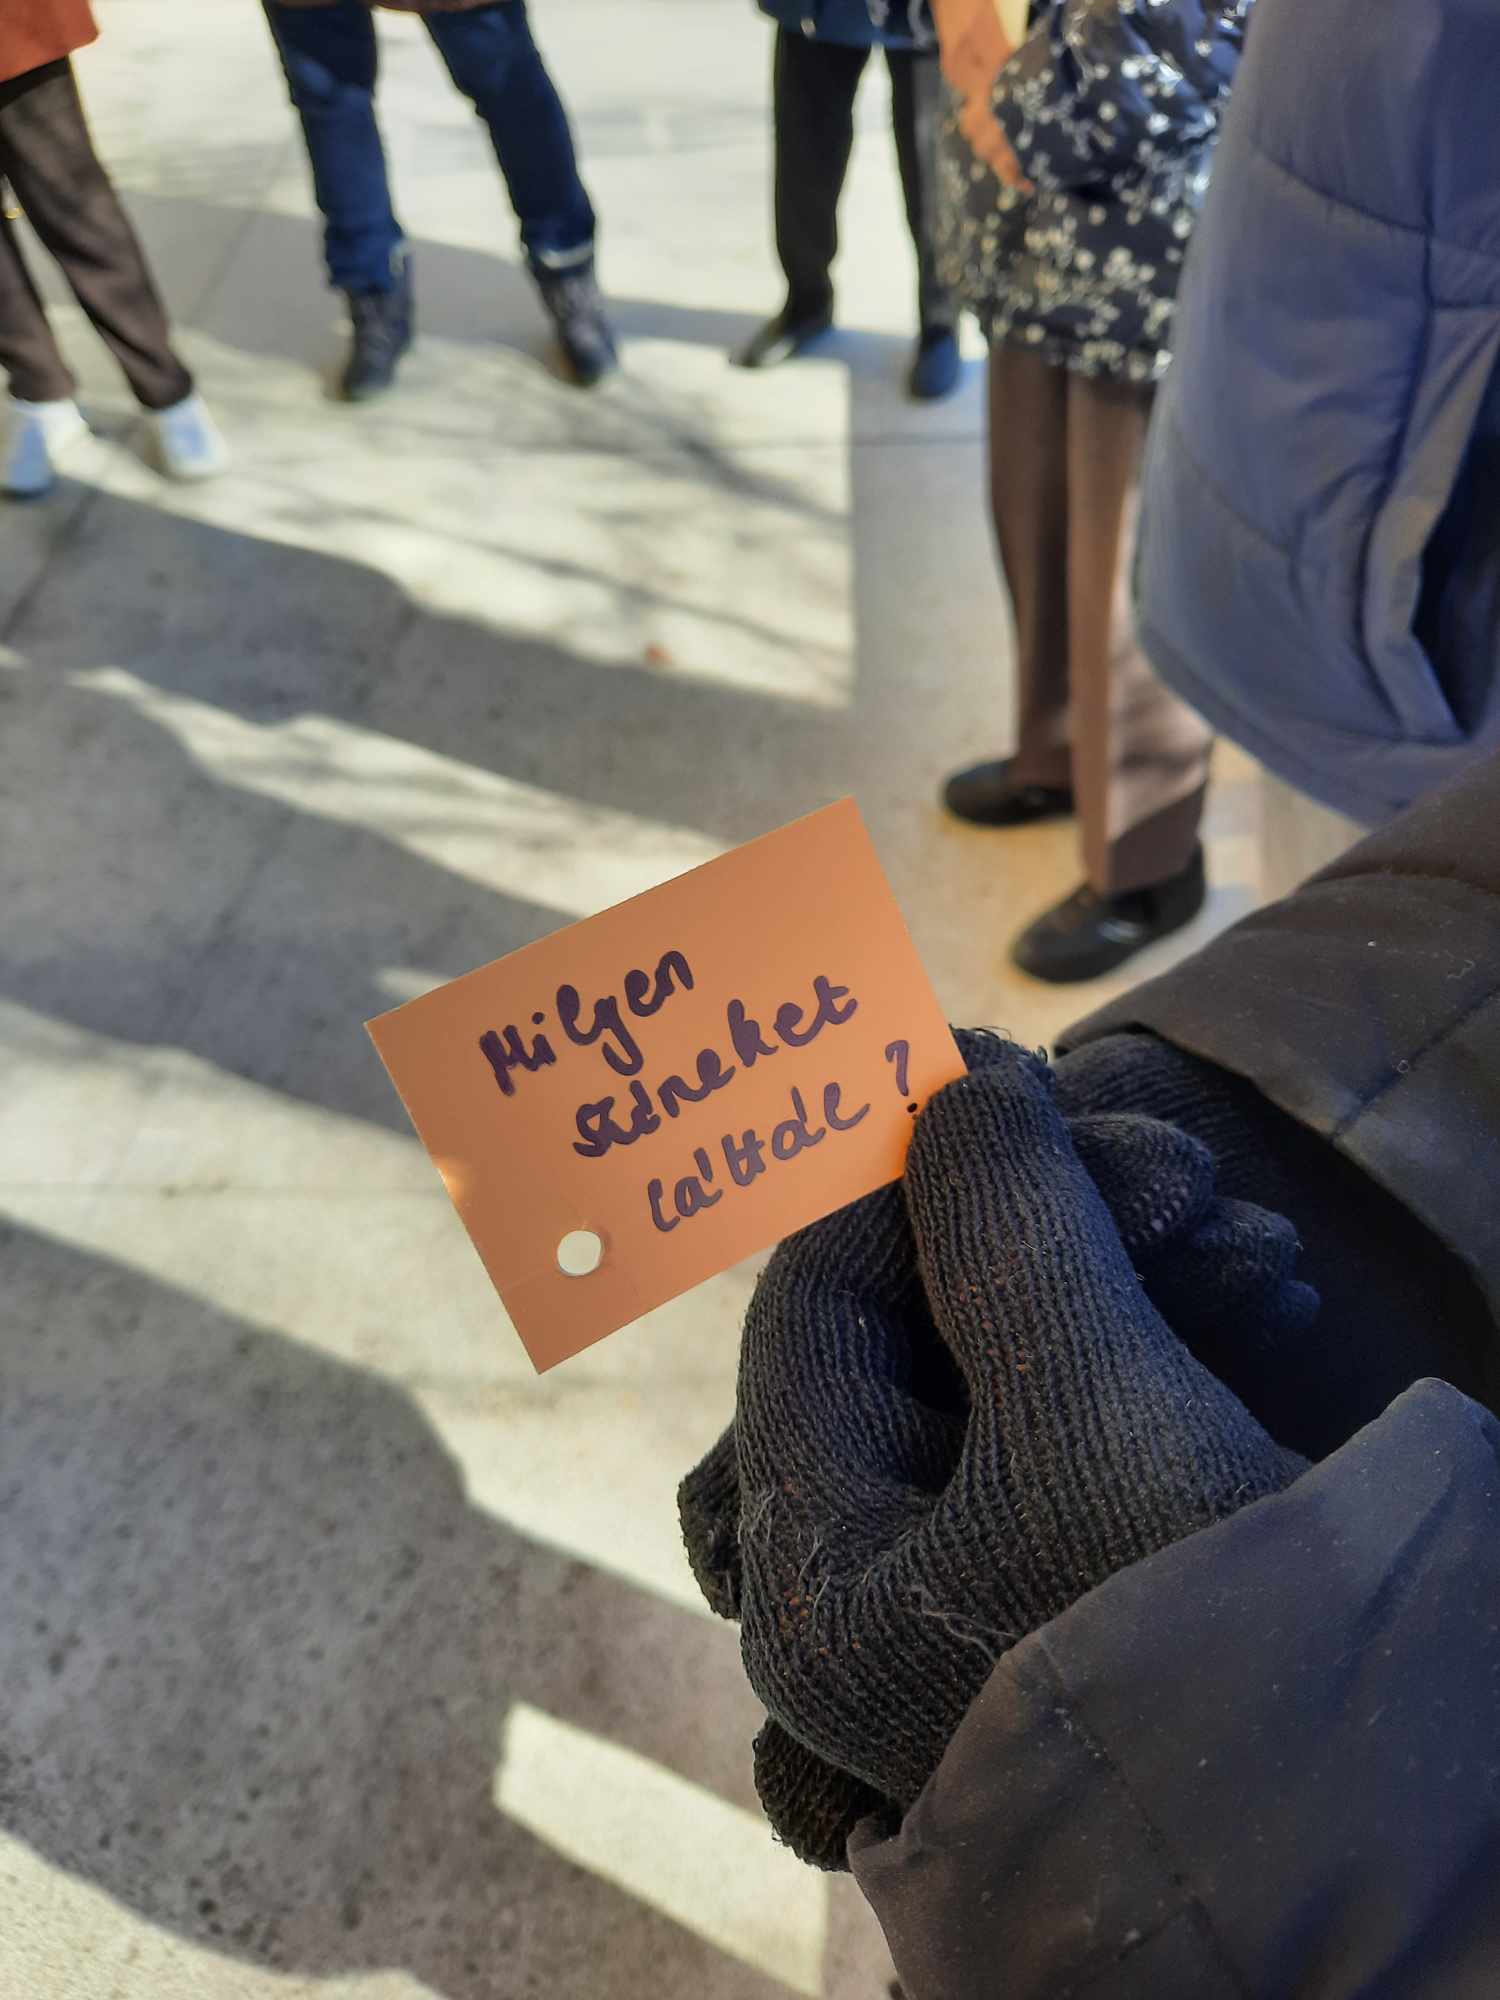 Milyen
színeket
láttál?